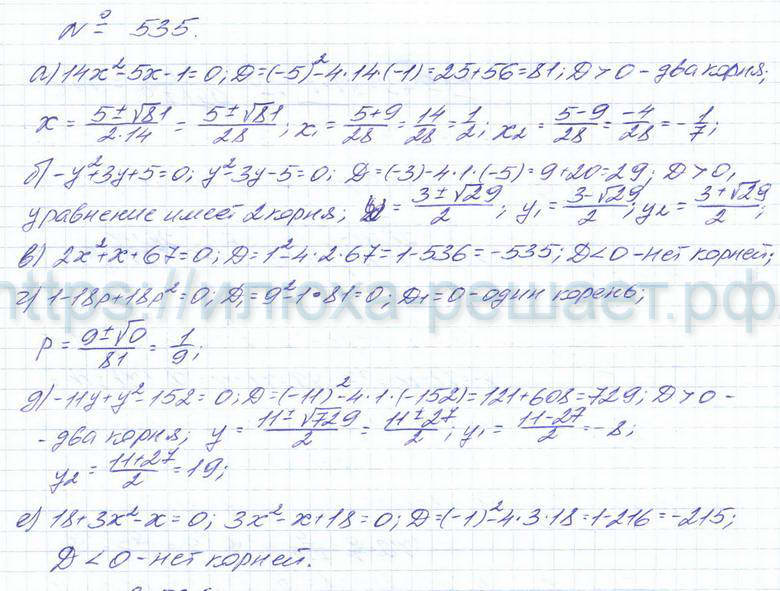 № 535.
а) 14x²-5x-1=0; D=(-5)²-4·14·(-1)=25+56=81; D>0 - два корня;
x = (5±√81)/(2·14) = (5±√81)/28; x₁ = (5+9)/28 = 14/28 = 1/2; x₂ = (5-9)/28 = -4/28 = -1/7;
б) -y²+3y+5=0; y²-3y-5=0; D=(-3)-4·1·(-5)=9+20=29; D>0,
уравнение имеет 2 корня; = (3±√29)/2; y₁ = (3-√29)/2; y₂ = (3+√29)/2;
в) 2x²+x+67=0; D=1²-4·2·67=1-536=-535; D<0 - нет корней;
https://илюха-решает.рф
г) 1-18p+18p²=0; D₁=9²-1·81=0; D₁=0 - один корень;
p = (9±√0)/81 = 1/9;
д) -11y+y²-152=0; D=(-11)²-4·1·(-152)=121+608=729; D>0 -
- два корня; y = (11±√729)/2 = (11±27)/2; y₁ = (11-27)/2 = -8;
y₂ = (11+27)/2 = 19;
е) 18+3x²-x=0; 3x²-x+18=0; D=(-1)²-4·3·18=1-216=-215;
D<0 - нет корней.